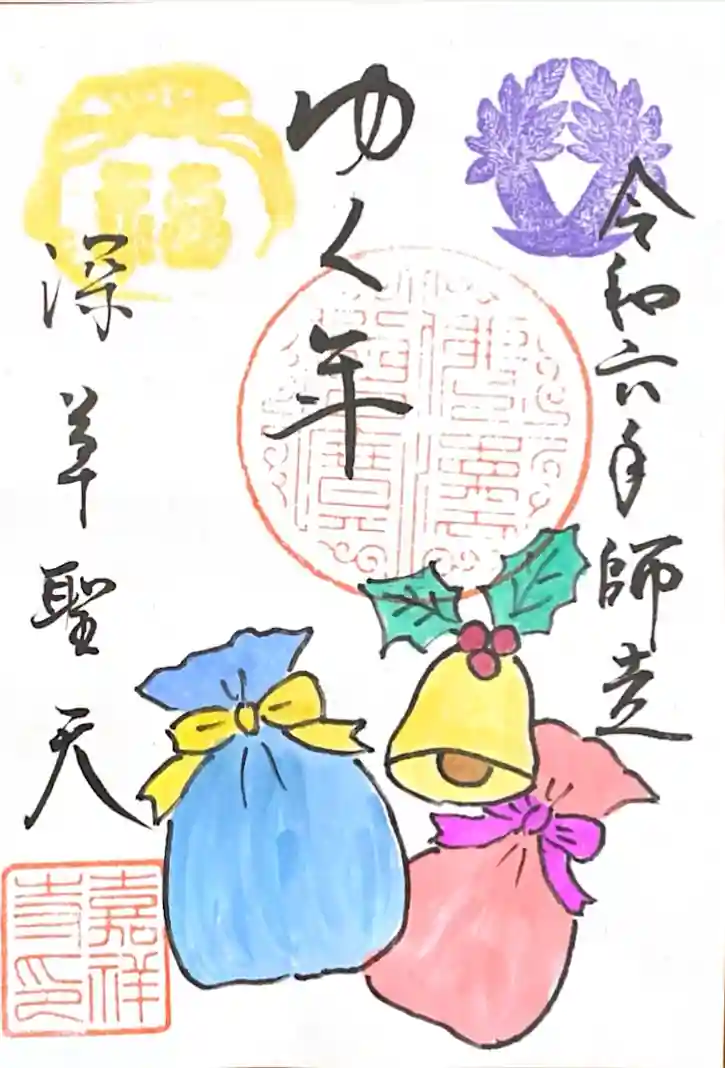 令和六年師走
ゆく年
深草聖天
嘉祥
寺印